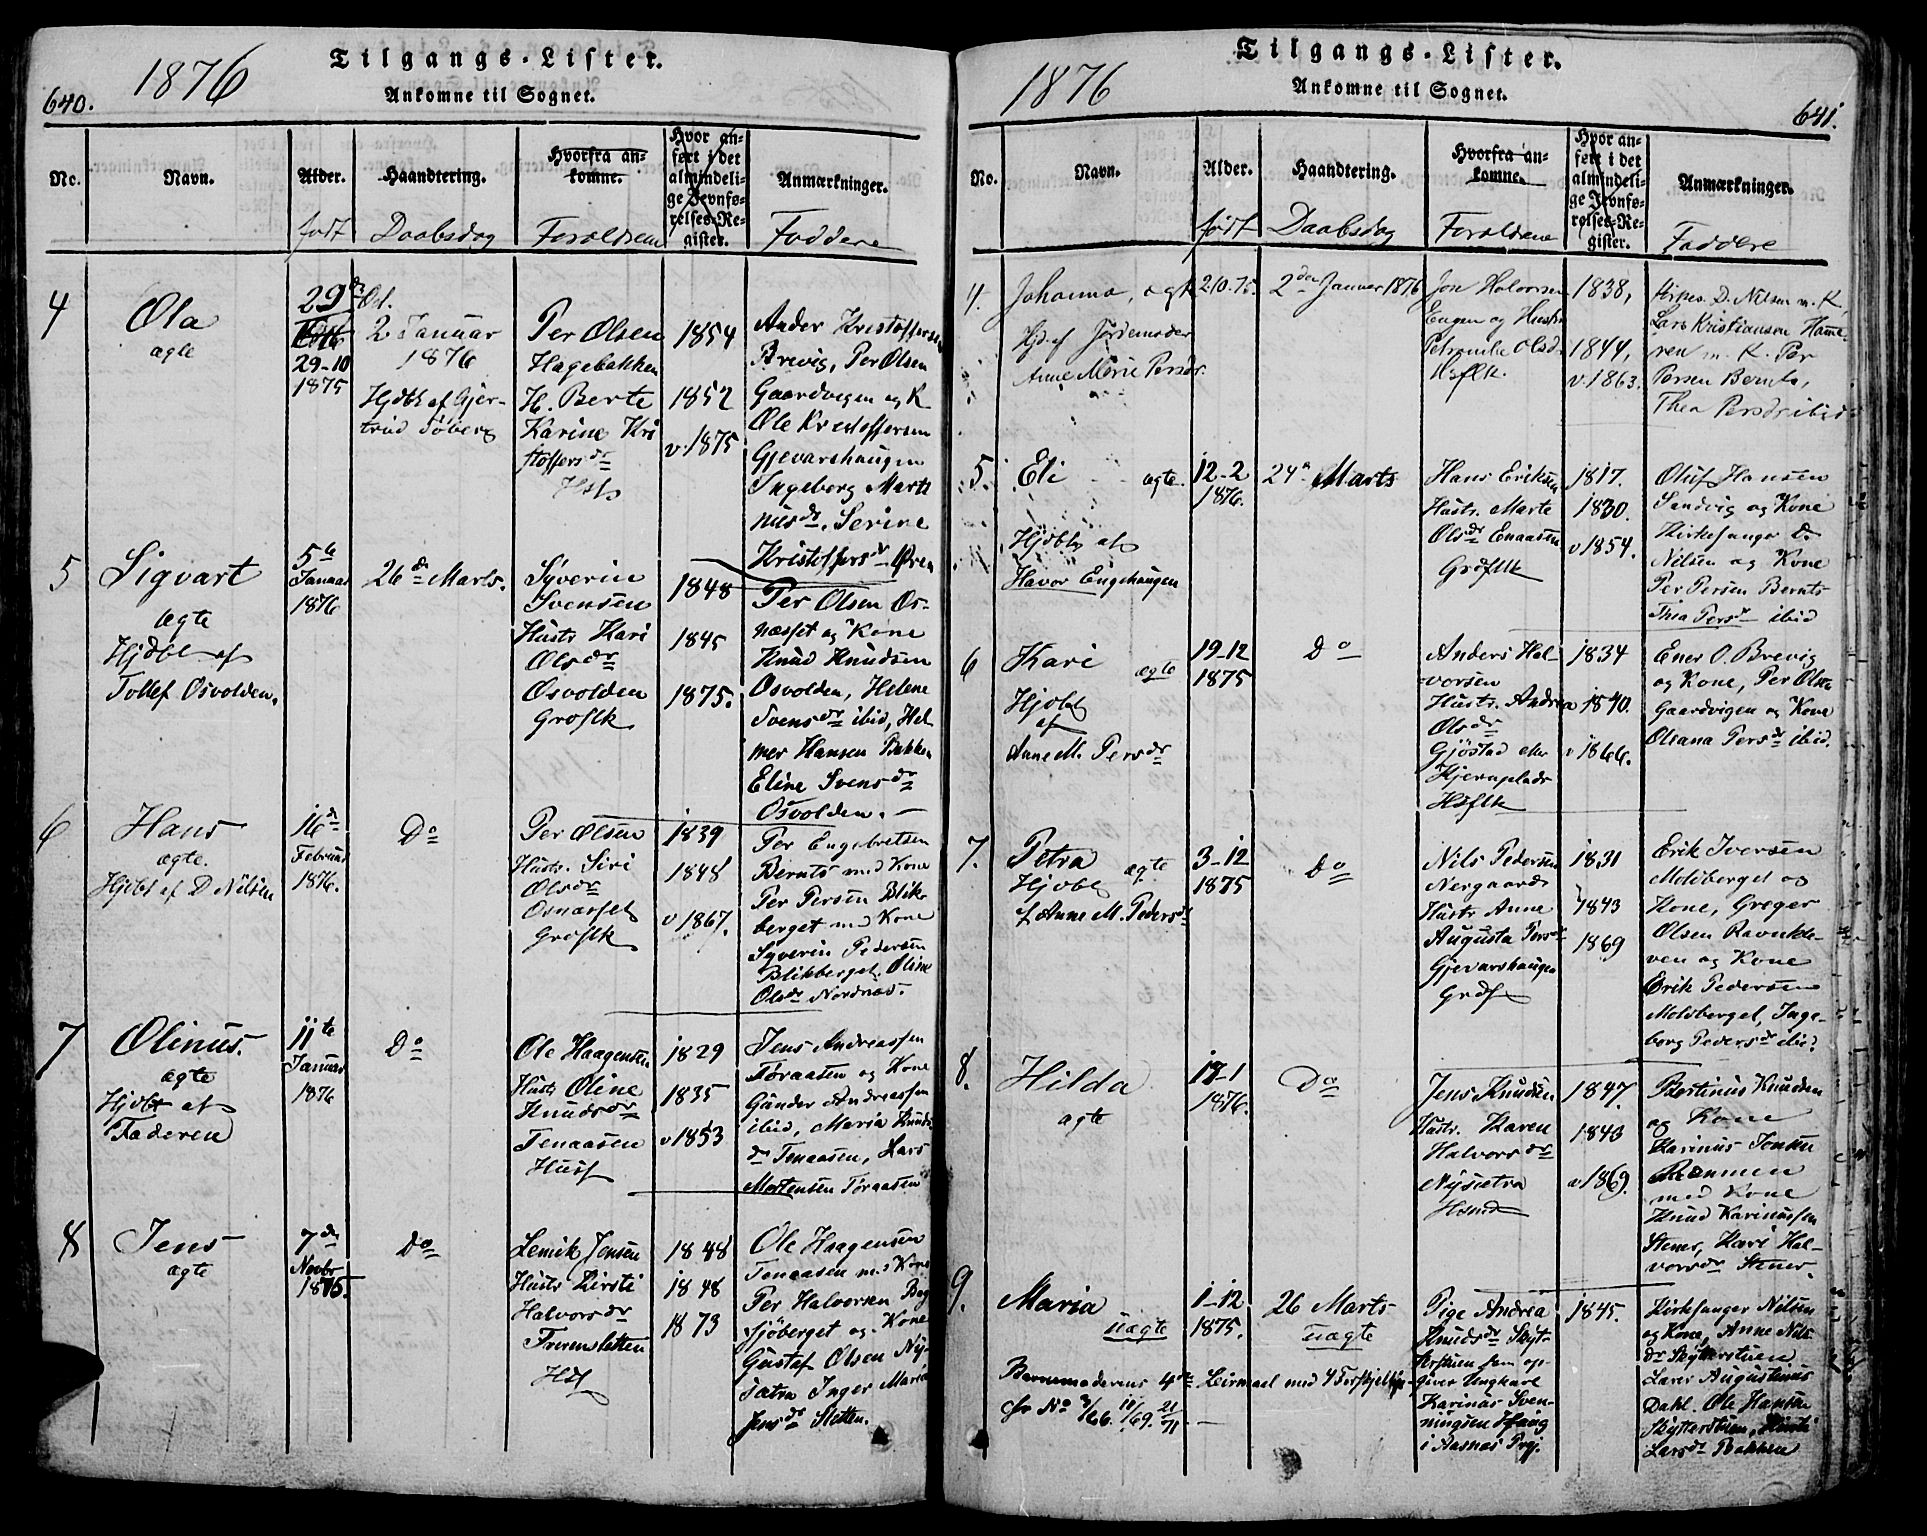 640.
1876
Tilgangs-Lister.
Ankomne til Sognet.
No.
Navn.
Alder.
født
Haandtering.
Daabsdag
Hvorfra an-
komne.
Forældrene
Hvor an-
ført i det
almindeli-
ge Jevnfø-
relses-Re-
gister.
Anmærkninger.
Faddere
4
Ola
ægte
29
29-10
1875
2 Januar
1876
Hjdbt af Gjer-
trud Søberg
Per Olsen
Hagebakken
H. Berte
Karine Kri
stoffersdr
1854
1852
v. 1875
Ander Kristoffersen
Brevig, Per Olsen
Gaardvigen og K
Ole Kristoffersen
Gjevarshaugen
Ingeborg Marti
nusdr, Serine
Kristoffersdr Øren
5
Sigvart
ægte
Hjdbt af
Tollef Osvolden.
5te
Januar
1876
26de Marts.
Syverin
Svensen
Hustr Kari
Olsdr
Osvolden
Grdflk
1848
1845
1875.
Per Olsen Os-
næsset og Kone
Knud Knudsen
Osvolden, Helene
Svensdr ibid, Hel
mer Hansen Bakken
Eline Svensdr
Osvolden. —
6
Hans
ægte.
Hjdbt af D Nilsen
16de
Februar
1876.
Do
Per Olsen
Hustr. Siri
Olsdr
Osnæsset
Grdflk
1839
1848
v 1867.
Per Engebretsen
Bernts med Kone
Per Persen Blik-
berget med Kone
Syverin Pedersen
Blikberget, Oline
Olsdr Nordnæs.
7
Olinus.
ægte
Hjdbt af
Faderen
11te
Januar
1876
Do
Ole Haagensen
Hustr Oline
Knudsdr
Tenaasen
Husf
1829
1835
v 1853
Jens Andreassen
Tøraasen og Kone
Gunder Andreassen
ibid, Maria Knuds
dr Tenaasen, Lars
Mortensen Tøraasen
8
Jens
ægte
7de
Novbr
1875.
Do
Lemik Jensen
Hustr Kirsti
Halvorsdr
Fremsletten
1848
1848
1873
Ole Haagensen
Tenaasen med Kone
Per Halvorsen Beg
sjøberget og Kone
Gustaf Olsen Ny-
sætra Inger Maria
Jensdr Sletten.
1876
Tilgangs-Lister.
Ankomne til Sognet.
641.
No.
Navn.
Alder.
født
Haandtering.
Daabsdag
Hvorfra an-
komne.
Forældrene
Hvor an-
ført i det
almindeli-
ge Jevnfø-
relses-Re-
gister.
Anmærkninger.
Faddere
4.
Johanna, ægte
Hjd. af Jordemoder
Anne Marie Persdr
2-10-75.
2den Januar 1876
Jon Halvorsen
Engen og Hustru
Petronille Olsdr
Hsflk.
1838,
1844,
v. 1863.
Kirkes. D. Nilsen m. K,
Lars Kristiansen Hame-
ren m. K. Per
Persen Bernts,
Thea Persdr ibid
5.
Eli ægte.
Hjdbt af
Havor Engehaugen
12-2
1876.
24de Marts
Hans Eriksen
Hustr. Marte
Olsdr Enaasen
Grdflk
1817.
1830.
v 1854.
Oluf Hansen
Sandvig og Kone
Kirkesanger D
Nilsen og Kone
Per Persen Bernts
Thea Persdr ibid
6
Kari ægte
Hjdbt
af
Anne M. Persdr
19-12
1875
Do
Anders Hal-
vorsen
Hustr. Andrea
Olsdr
Gjøstad eller
Kjernplads
Hsflk
1834
1840.
v 1866.
Ener O. Brevig
og Kone, Per Olsen
Gaardvigen og Kone
Oleana Persdr ibid.
7.
Petra ægte
Hjdbt
af Anne M. Pedersdr
3-12
1875
Do
Nils Pedersen
Nergaard
Hustr Anne
Augusta Persdr
Gjevarshaugen
Grdf
1831
1843
1869
Erik Iversen
Moldberget og
Kone, Greger
Olsen Ravnkle-
ven og Kone
Erik Pedersen
Moldberget, Inge-
borg Pedersdr ibid.
8.
Hilda
ægte
17-1
1876.
Do
Jens Knudsen
Hustr. Karen
Halvorsdr
Nysætra
1847.
1843
v 1869.
Bertinus Knudsen
og Kone
Karinus Jonsen
Rønnen
med Kone
Knud Karinussen
Stener, Kari Hal-
vorsdr Stener.
9.
Maria
uægte
1-12
1875.
26 Marts
uægte
Pige Andrea
Knudsdr Skyt-
terstuen som op-
giver Ungkarl
Karinus Sven-
ningsen Haug
i Aasnæs Prgj.
1845.
Barnemoderens 4de Leirmaal med 4 Forskjellige
Cfr No 3/66. 10/69. 21/71 —
Kirkesanger Nilsen
og Kone, Anne Nils
dr Skytterstuen
Lærer Augustinus
Dahl, Ole Hansen
Skytterstuen, Kirsti
Larsdr Bakken